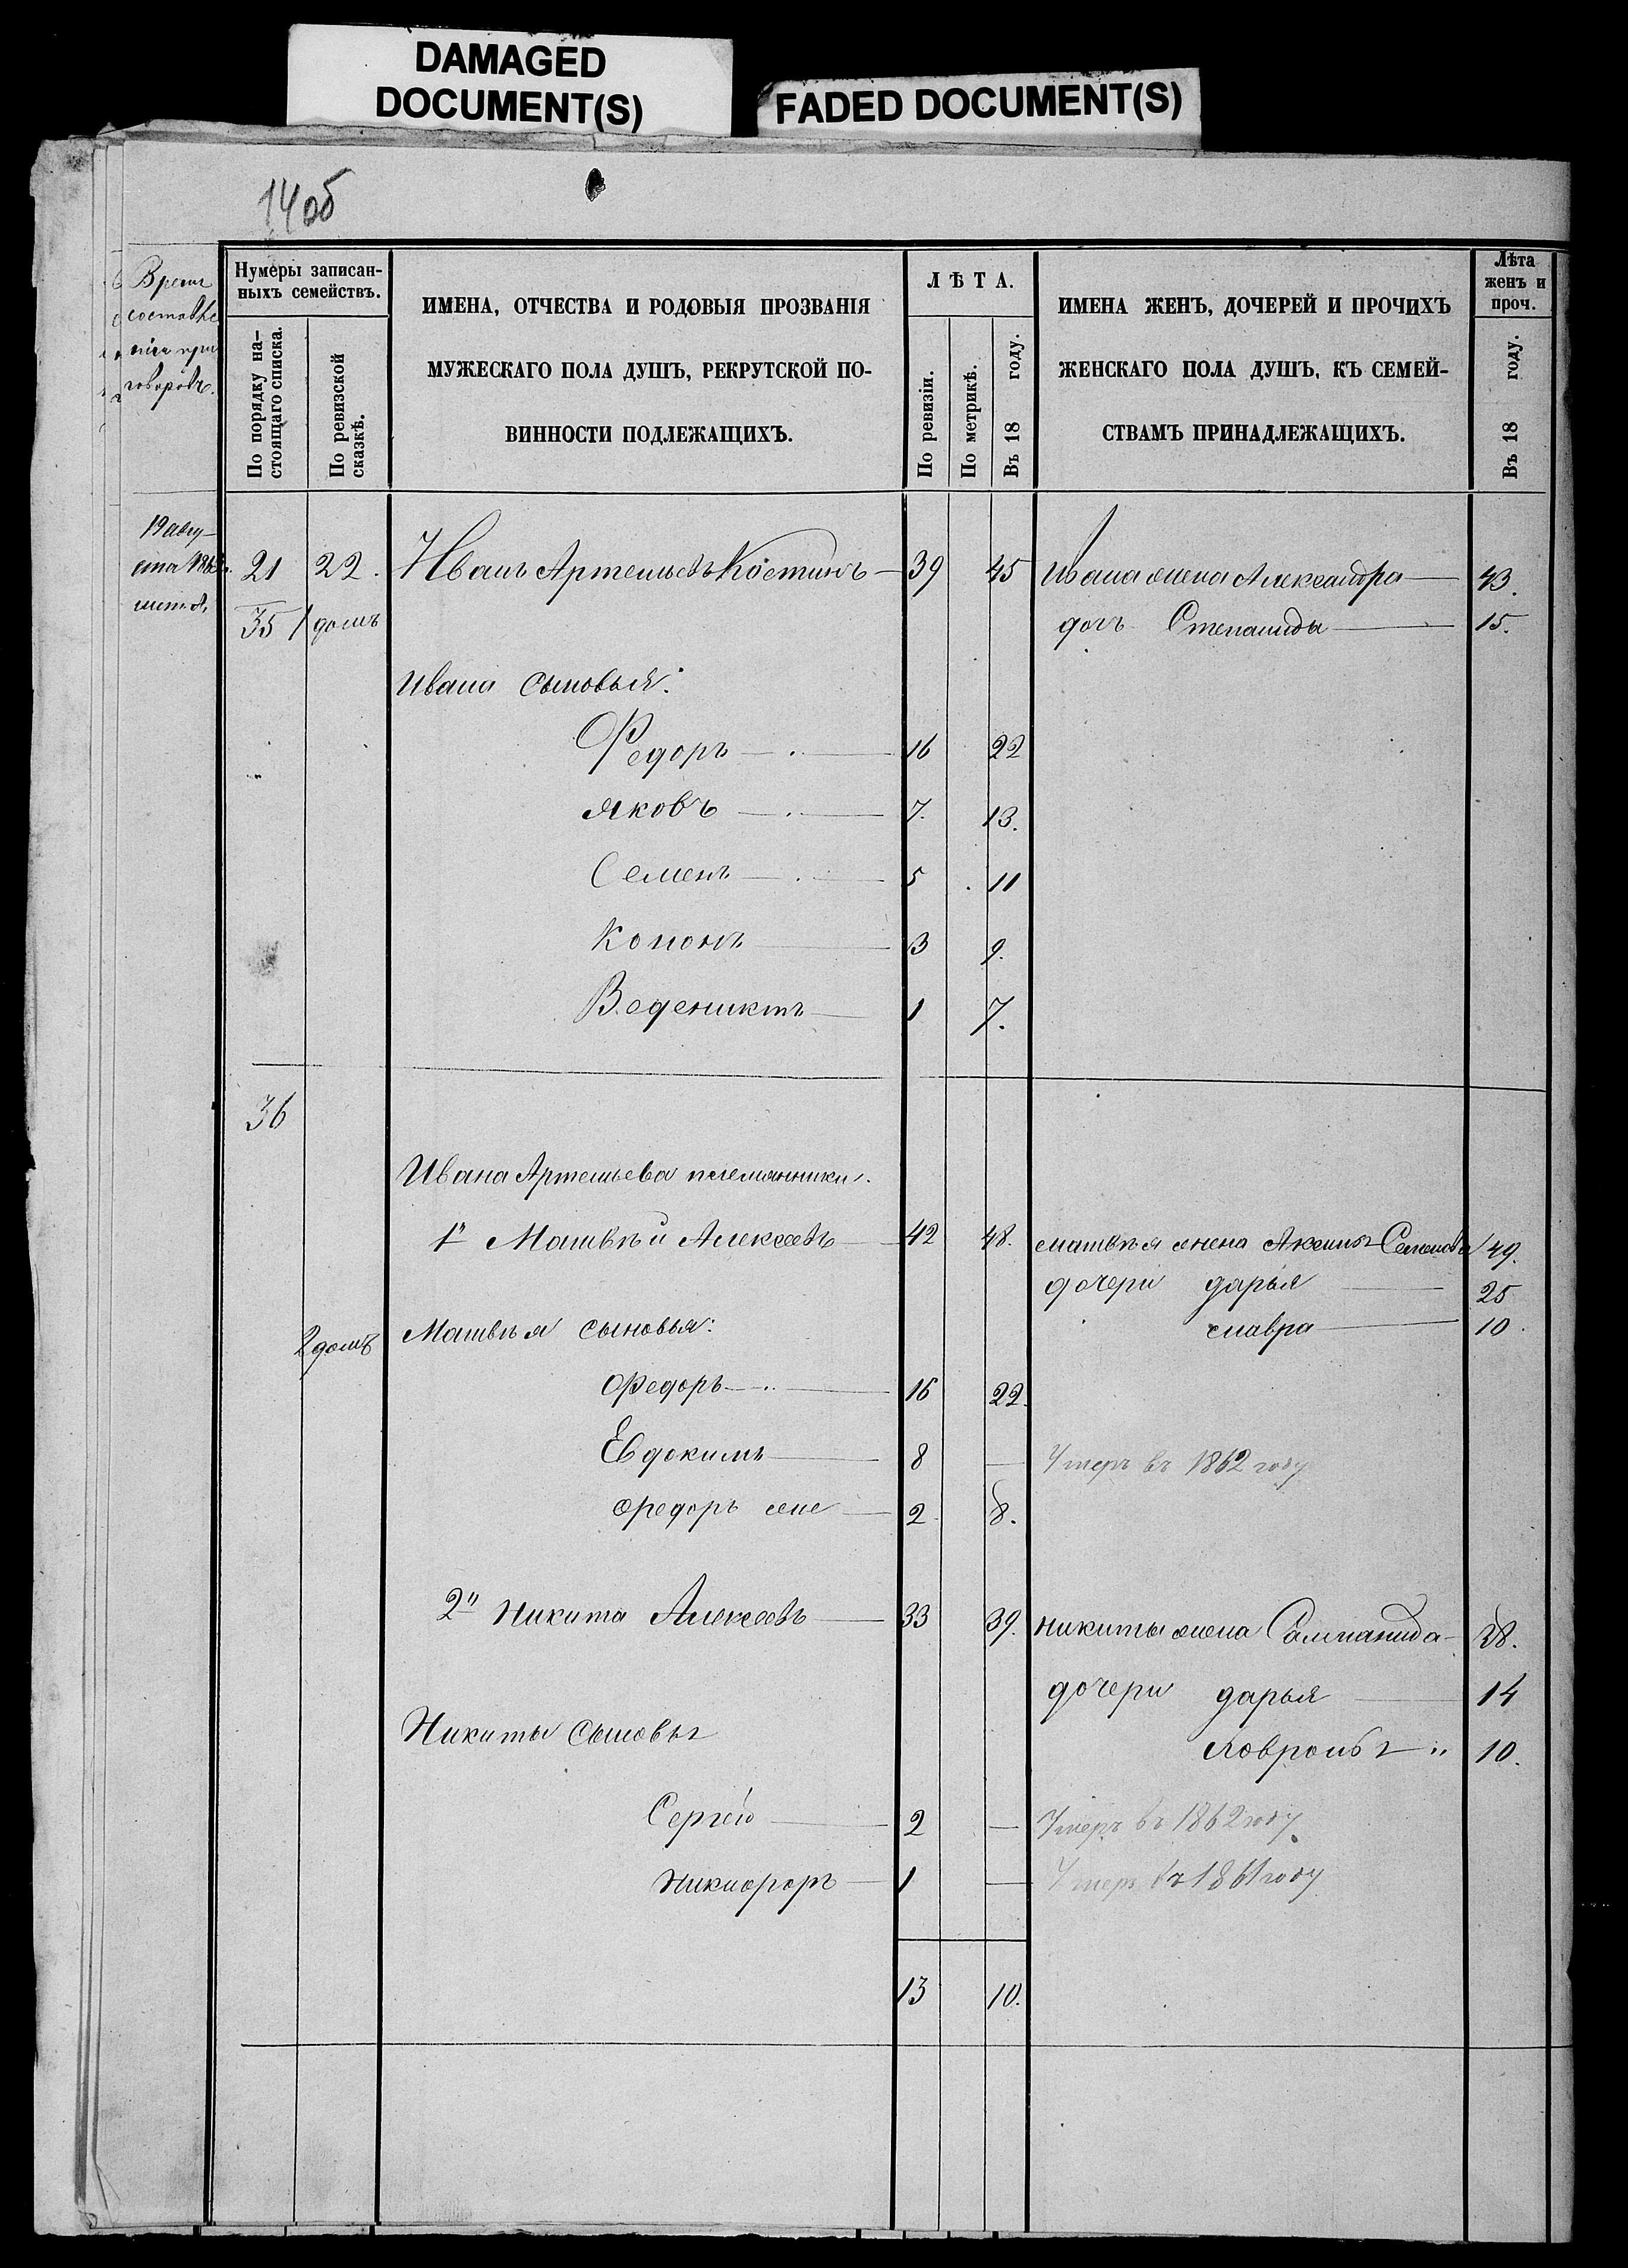 DAMAGED
DOCUMENT(S)
FADED DOCUMENT(S)
14об
Время
составле
нія при
говоровъ.
Нумеры записан-
ныхъ семействъ.
По порядку на-
стоящаго списка.
По ревизской
сказкѣ.
ИМЕНА, ОТЧЕСТВА И РОДОВЫЯ ПРОЗВАНІЯ
МУЖЕСКАГО ПОЛА ДУШЪ, РЕКРУТСКОЙ ПО-
ВИННОСТИ ПОДЛЕЖАЩИХЪ.
ЛѢТА.
По ревизіи.
По метрикѣ.
Въ 18 году.
ИМЕНА ЖЕНЪ, ДОЧЕРЕЙ И ПРОЧИХЪ
ЖЕНСКАГО ПОЛА ДУШЪ, КЪ СЕМЕЙ-
СТВАМЪ ПРИНАДЛЕЖАЩИХЪ.
Лѣта
женъ и
проч.
Въ 18 году.
19 авгу-
ста
21 22. Иванъ Артемьевъ Костинъ 39 45 Ивана жена Александра 43.
35 1 домъ дочь Степанида 15.
Ивана сыновья:
Федоръ 16 22
Яковъ 7. 13.
Семенъ 5 11
Кононъ 3 9.
Ведениктъ 1 7.
36
Ивана Артемьева племянники.
1й Матвѣй Алексеевъ 42 48. Матвѣя жена Аксинья Семенова 49.
дочери дарья 25
2 домъ Матвѣя сыновья: Мавра 10.
Федоръ 16 22.
Евдокимъ 8 — Умеръ въ 1862 году
Федоръ же 2 8.
2й Никита Алексеевъ 33 39. Никиты жена 38.
дочери дарья 14
Никиты сыновья
10.
Сергей 2 — Умеръ въ 1862 году
Никифоръ 1 — Умеръ въ 1861 году
13 10.